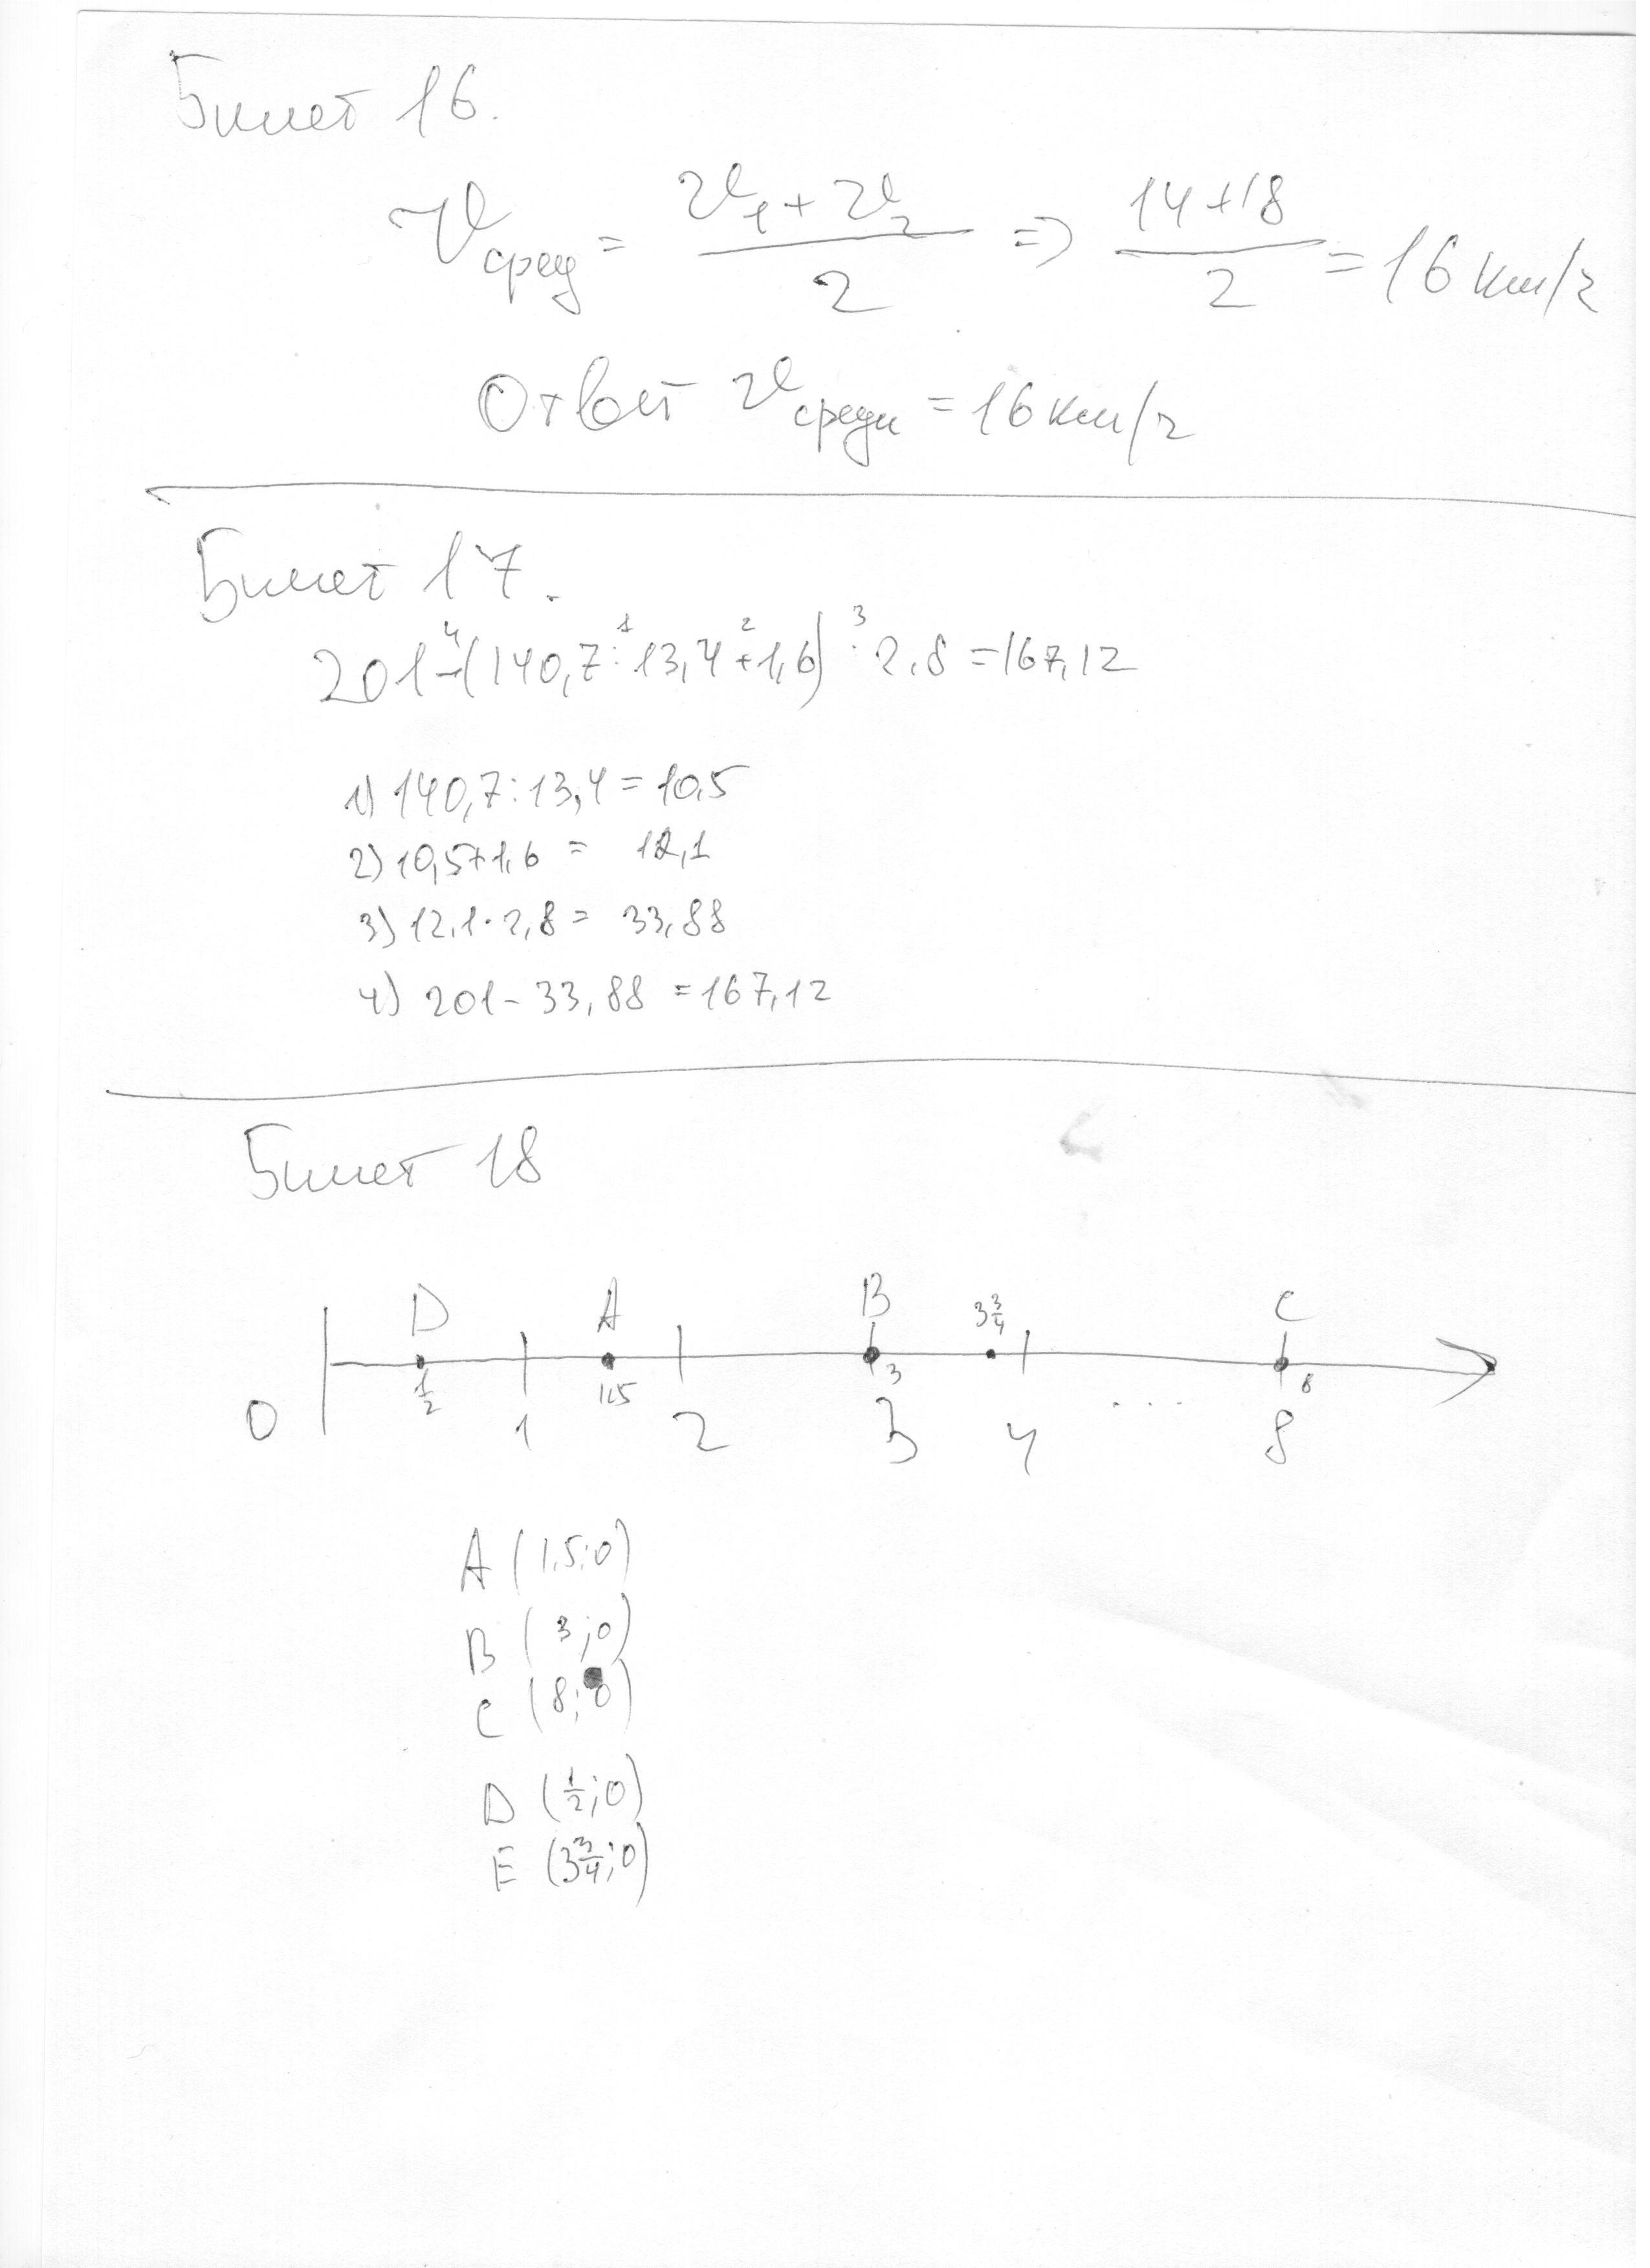 Билет 16.
v сред = v1 + v2 / 2 => 14+18 / 2 = 16 км/ч
Ответ v средн = 16 км/ч
Билет 17.
4 1 2 3
201-(140,7:13,4+1,6)·2,8=167,12
1) 140,7:13,4=10,5
2) 10,5+1,6 = 12,1
3) 12,1·2,8= 33,88
4) 201-33,88=167,12
Билет 18
D A B 3 3/4 C
1/2 1,5 3 8
0 1 2 3 4 ... 8
A (1,5;0)
B (3;0)
C (8;0)
D (1/2;0)
E (3 3/4;0)